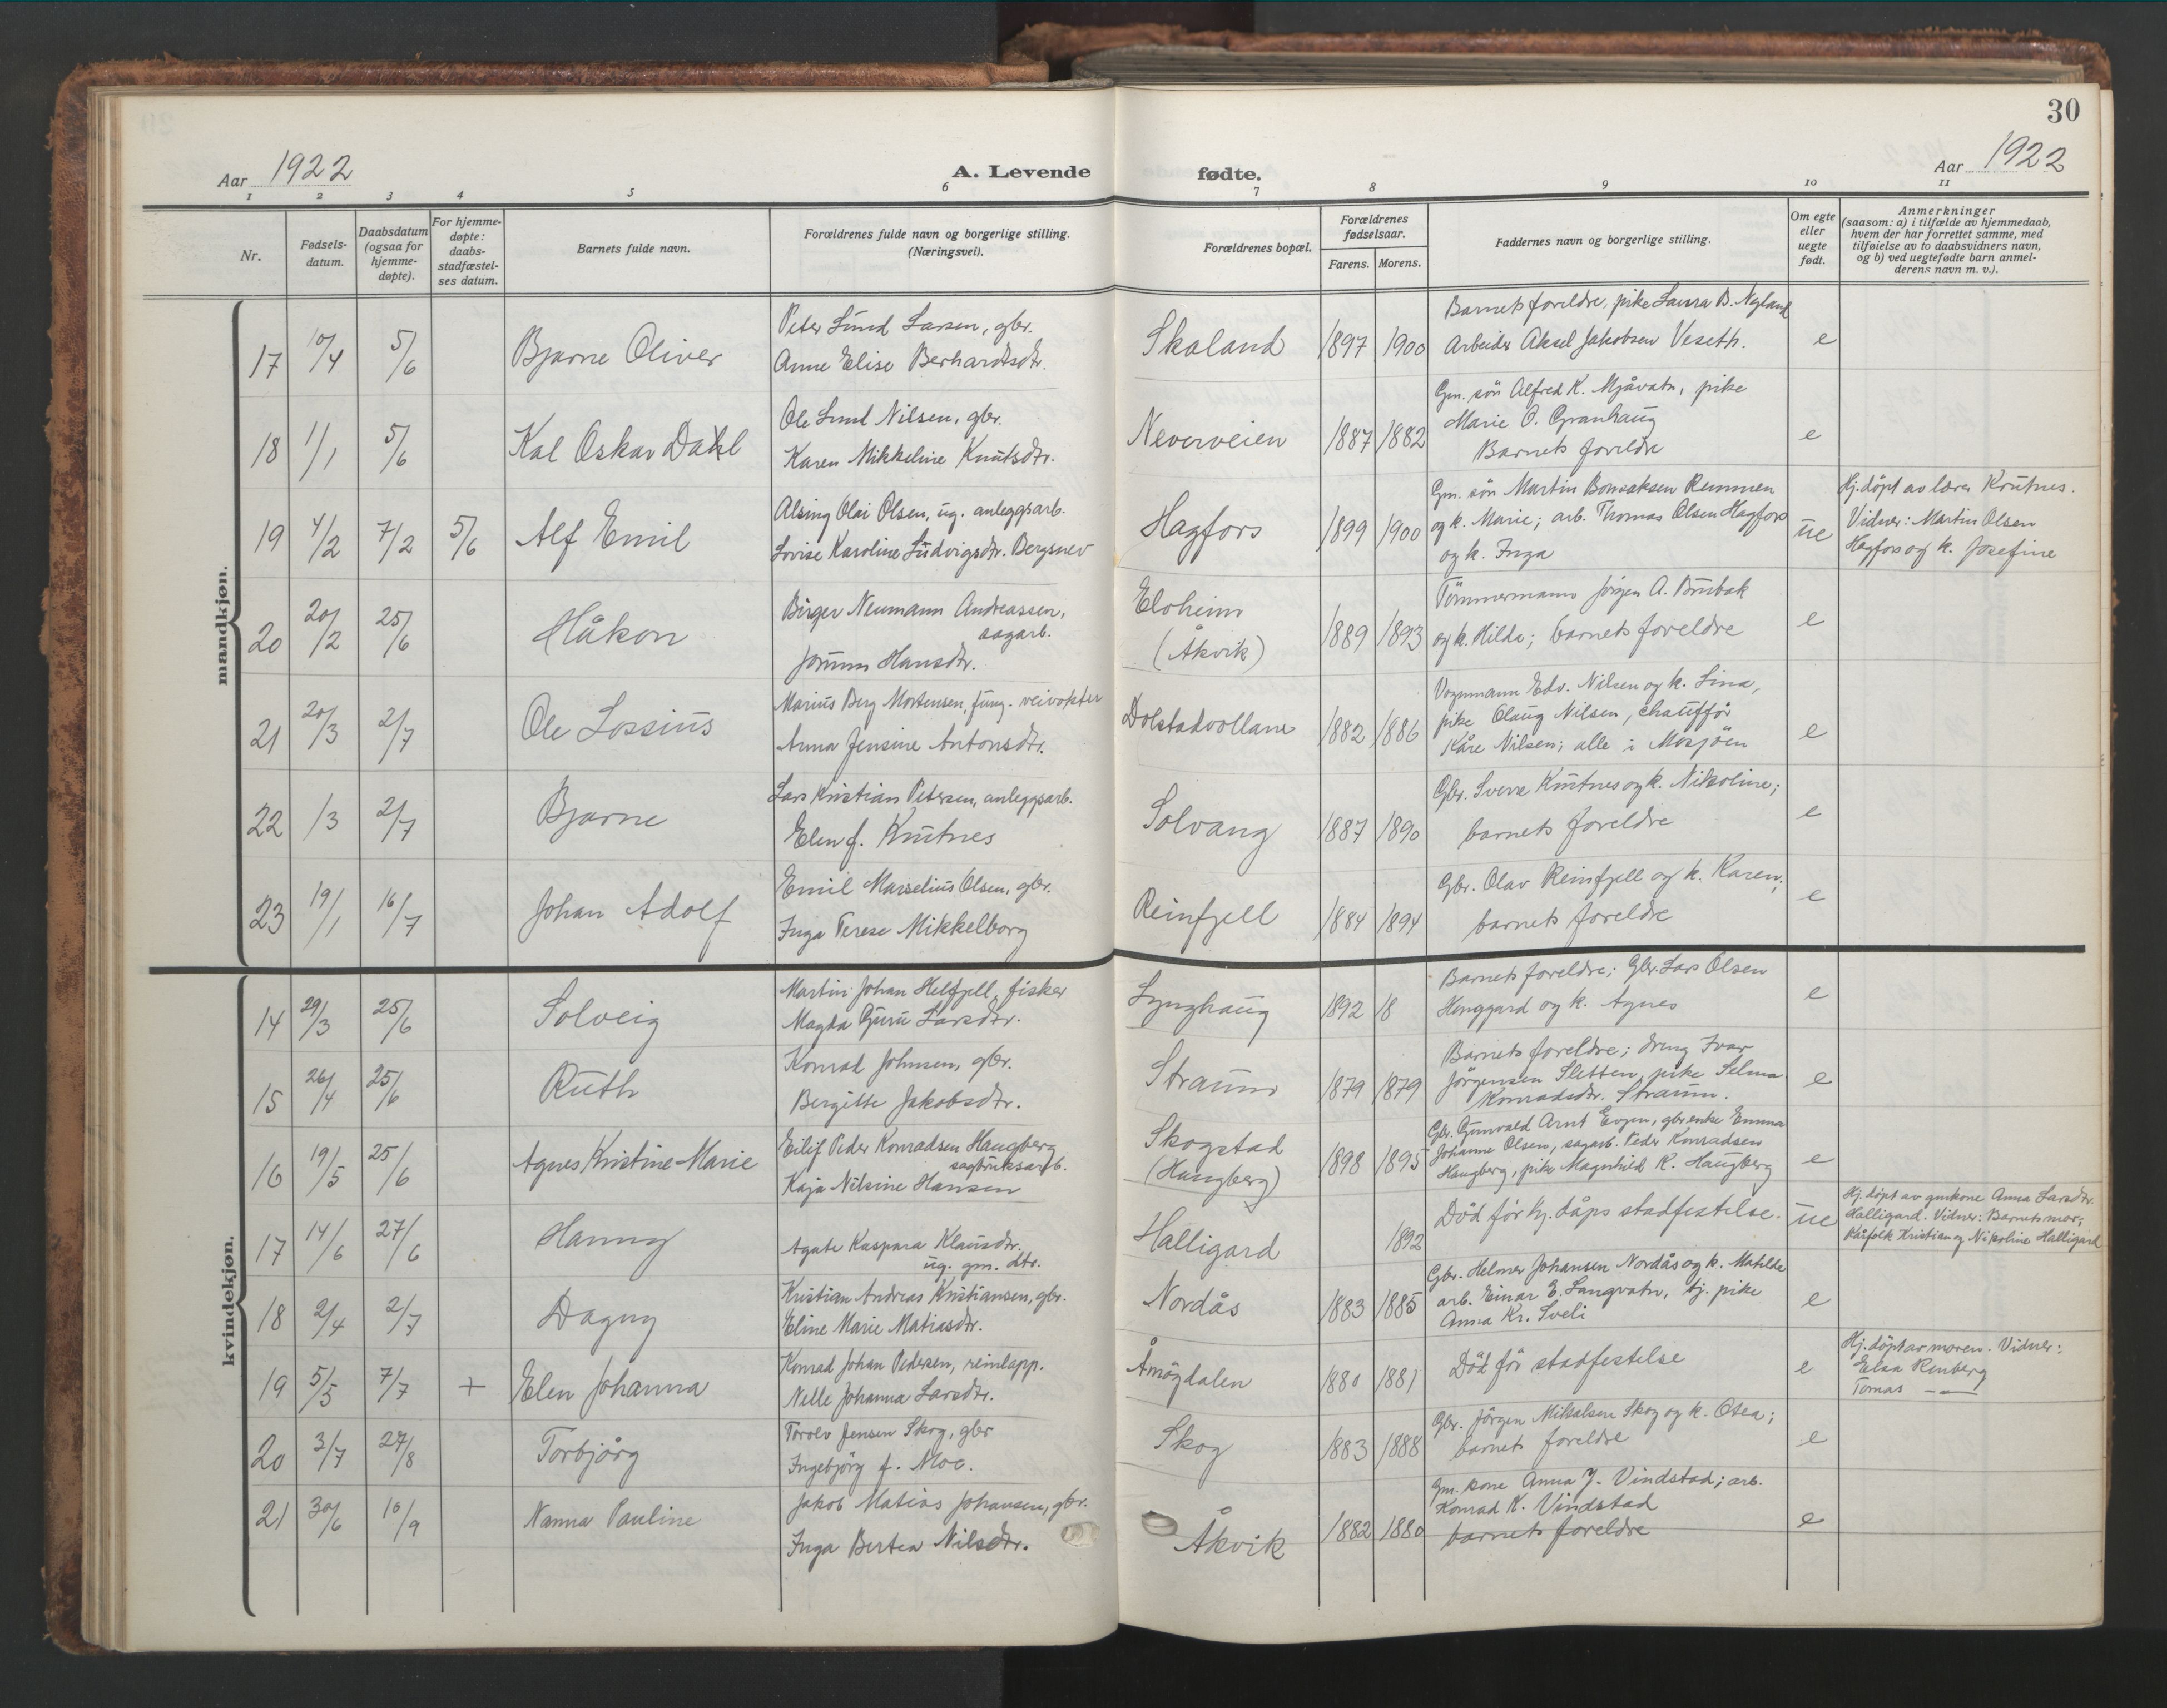 30
Aar 1922
A. Levende fødte.
Aar 1922
1 2 3 4 5 6 7 8 9 10 11
Nr.
Fødsels-
datum.
Daabsdatum
(ogsaa for
hjemme-
døpte).
For hjemme-
døpte:
daabs-
stadfæstel-
ses datum.
Barnets fulde navn.
Forældrenes fulde navn og borgerlige stilling.
(Næringsvei).
Forældrenes bopæl.
Forældrenes
fødselsaar.
Farens. Morens.
Faddernes navn og borgerlige stilling.
Om egte
eller
uegte
født.
Anmerkninger
(saasom: a) i tilfælde av hjemmedaab,
hvem der har forrettet samme, med
tilføielse av to daabsvidners navn,
og b) ved uegtefødte barn anmel-
derens navn m. v.).
mandkjøn.
17 10/4 5/6 Bjarne Oliver
Peter Lund Larsen, gbr.
Anne Elise Berhardtsdtr.
Skaland 1897 1900
Barnets foreldre, pike Laura B. Nyland
Arbeider Aksel Jakobsen Veseth.
e
18 1/1 5/6 Kal Oskar Dahl
Ole Lund Nilsen, gbr.
Karen Mikkeline Knutsdtr.
Neverveien 1887 1882
Gm. søn Alfred K. Mjåvatn, pike
Marie O. Granhaug
Barnets foreldre
e
19 4/2 7/2 5/6 Alf Emil
Alsing Olai Olsen, ug. anleggsarb.
Lovise Karoline Ludvigsdtr. Bergsnev
Hagfors 1899 1900
Gm. søn Martin Bonsaksen Remmen
og k. Marie; arb. Thomas Olsen Hagfors
og k. Inga
ue
Hj. døpt av lærer Krutnes.
Vidner: Martin Olsen
Hagfors og k. Josefine
20 20/2 25/6 Håkon
Birger Neumann Andreassen,
sagarb.
Jorunn Hansdtr.
Eloheim
(Åkvik)
1889 1893
Tømmermann Jørgen A. Brubak
og k. Hilda; barnets foreldre
e
21 20/3 2/7 Ole Lossius
Marius Berg Mortensen, fung. veivokter
Anna Jensine Antonsdtr.
Dolstadvollane 1882 1886
Vognmann Edv. Nilsen og k. Lina,
pike Olaug Nilsen, chauffør
Kåre Nilsen; alle i Mosjøen
e
22 1/3 2/7 Bjarne
Lars Kristian Petersen, anleggsarb.
Elen f. Krutnes
Solvang 1887 1890
Gbr. Sverre Krutnes og k. Nikoline;
barnets foreldre
e
23 19/1 16/7 Johan Adolf
Emil Marselius Olsen, gbr.
Inga Terese Mikkelborg
Reinfjell 1884 1894
Gbr. Olav Reinfjell og k. Karen;
barnets foreldre
e
kvindekjøn.
14 29/3 25/6 Solveig
Martin Johan Helfjell, fisker
Magda Guru Larsdtr.
Lynghaug 1892 18
Barnets foreldre; Gbr. Lars Olsen
Henggard og k. Agnes
e
15 26/4 25/6 Ruth
Konrad Johnsen, gbr.
Bergitte Jakobsdtr.
Straum 1879 1879
Barnets foreldre; dreng Ivar
Jørgensen Sletten, pike Selma
Konradsdtr. Straum.
e
16 19/5 25/6 Agnes Kristine Marie
Eilif Peder Konradsen Haugberg
sagbruksarb.
Kaja Nilsine Hansen
Skogstad
(Haugberg)
1898 1895
Gbr. Gunvald Arnt Evjen, gbr.enke Emma
Johanne Olsen, sagarb. Peder Konradsen
Haugberg, pike Magnhild K. Haugberg
e
17 14/6 27/6 Hanny
Agate Kaspara Klausdtr.
ug. gm. dtr.
Halligard 1892
Död før hj. dåps stadfestelse.
ue
Hj. døpt av gmkone Anna Larsdtr.
Halligard. Vidner: Barnets mor;
kårfolk Kristian og Nikoline Halligard
18 2/4 2/7 Dagny
Kristian Andreas Kristiansen, gbr.
Eline Marie Matiasdtr.
Nordås 1883 1885
Gbr. Helmer Johansen Nordås og k. Matilde
arb. Einar E. Langvatn, tj. pike
Anna Kr. Sveli
e
19 5/5 7/7 + Elen Johanna
Konrad Johan Pedersen, reinlapp.
Nelle Johanna Larsdtr.
Åmøgdalen 1880 1881
Död før stadfestelse
e
Hj. døpt av moren. Vidner:
Elsa Renberg
Tomas —
20 3/7 27/8 Torbjørg
Torolv Jensen Skog, gbr
Ingebjørg f. Moe.
Skog 1883 1888
Gbr. Jørgen Mikalsen Skog og k. Otea;
barnets foreldre
e
21 30/6 10/9 Nanna Pauline
Jakob Matias Johansen, gbr.
Inga Bertea Nilsdtr.
Åkvik 1882 1880
Gm. kone Anna J. Vindstad; arb.
Konrad K. Vindstad
barnets foreldre
e